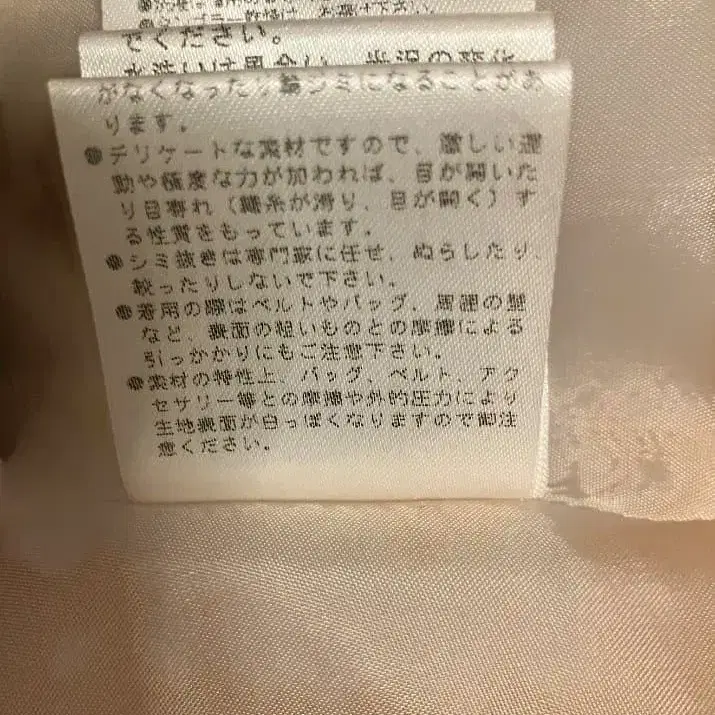 でください。
がなくなったり輪ジミになることがあ
ります。
●デリケートな素材ですので、激しい運
動や極度な力が加われば、目が開いた
り目寄れ（織糸が滑り、目が開く）す
る性質をもっています。
●シミ抜きは専門家に任せ、ぬらしたり、
絞ったりしないで下さい。
●着用の際はベルトやバッグ、周囲の壁
など、表面の粗いものとの摩擦による
引っかかりにもご注意下さい。
●素材の特性上、バッグ、ベルト、アク
セサリー等との摩擦や外的圧力により
生地表面が白っぽくなりますので御注
意ください。